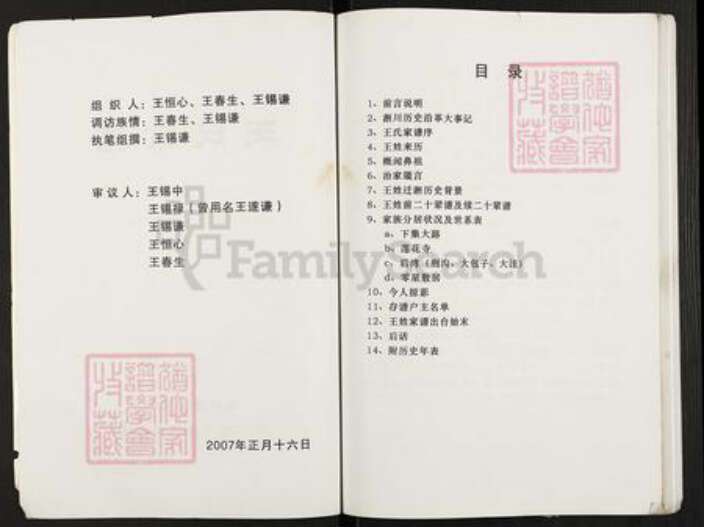 组 织 人：王恒心、王春生、王锡谦
调访族情：王春生、王锡谦
执笔组撰：王锡谦
审 议 人：王锡中
王锡禄（曾用名王遂谦）
王锡谦
王恒心
王春生
2007年正月十六日
目 录
1、前言说明
2、淅川历史沿革大事记
3、王氏家谱序
4、王姓来历
5、概闻鼻祖
6、治家箴言
7、王姓迁淅历史背景
8、王姓前二十辈谱及续二十辈谱
9、家族分居状况及世系表
a、下集大路
b、莲花寺
c、后湾（荆沟、大包子、大洼）
d、零星散居
10、今人掠影
11、存谱户主名单
12、王姓家谱出台始末
13、后话
14、附历史年表
FamilySearch